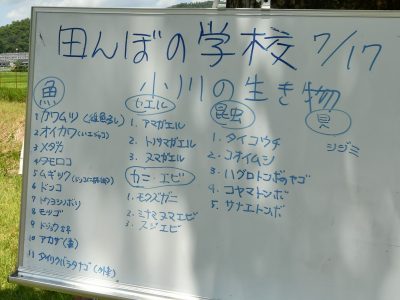 田んぼの学校 7/17
小川の生き物
魚
1 カワムツ
2 オイカワ
3 メダカ
4 タモロコ
5 ムギツク
6 ドンコ
7 トウヨシノボリ
8 モツゴ
9 ドジョウ
10 アカザ
11 タイリクバラタナゴ (外来)
カエル
1. アマガエル
2. トノサマガエル
3. ヌマガエル
カニ・エビ
1. モクズガニ
2. ミナミヌマエビ
3. スジエビ
昆虫
1. タイコウチ
2. コオイムシ
3. ハグロトンボのヤゴ
4. コヤマトンボ
5. サナエトンボ
貝
シジミ